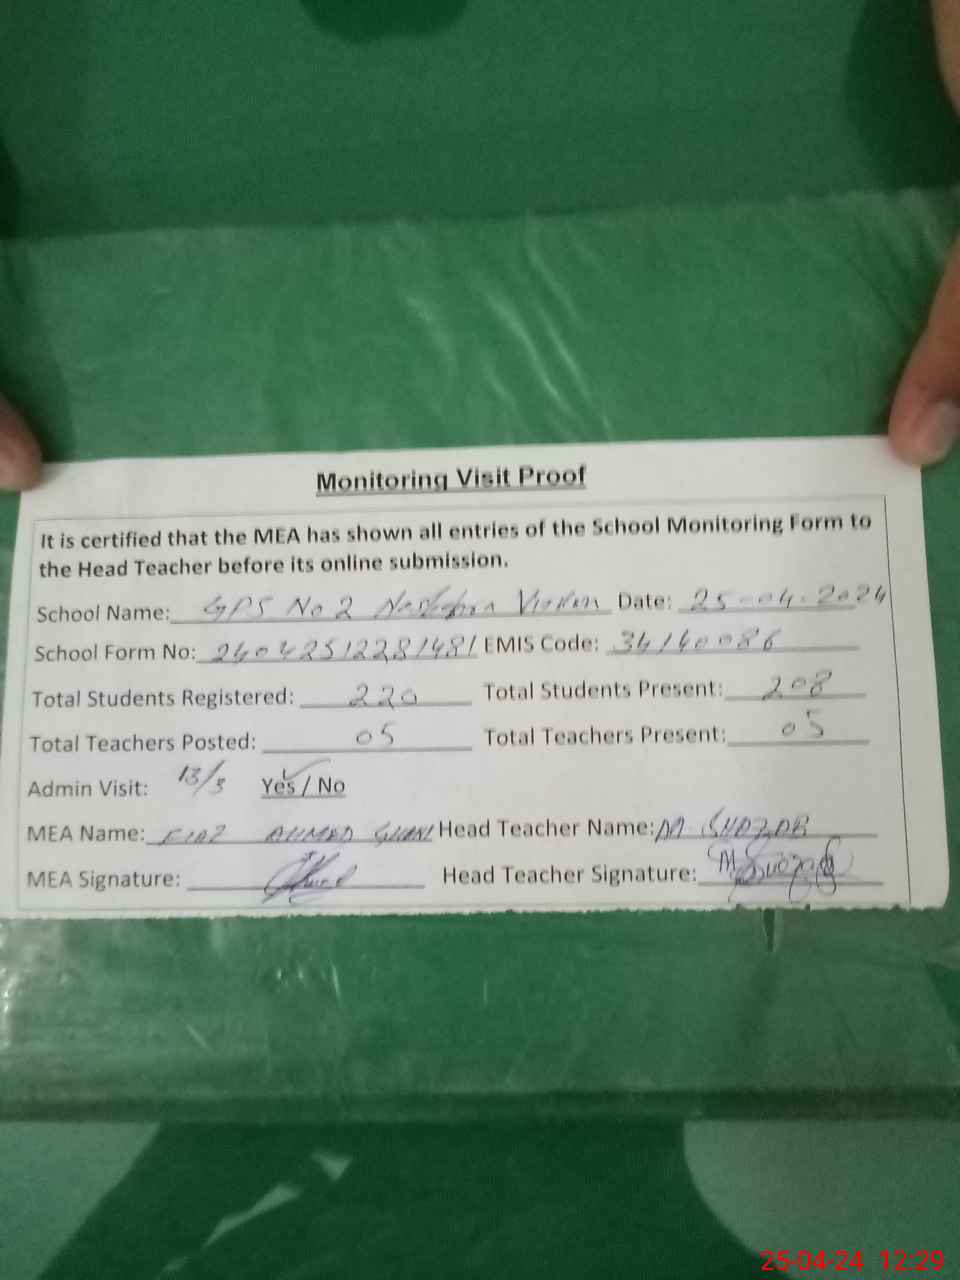 Monitoring Visit Proof
It is certified that the MEA has shown all entries of the School Monitoring Form to
the Head Teacher before its online submission.
School Name: GPS No 2 Date: 25-04-2024
School Form No: 24042512281481 EMIS Code: 34140086
Total Students Registered: 220 Total Students Present: 208
Total Teachers Posted: 05 Total Teachers Present: 05
Admin Visit: 13/3 Yes / No
MEA Name: FIAZ AHMED GHANI Head Teacher Name: M. SHAZAB
MEA Signature: Head Teacher Signature:
25-04-24 12:29